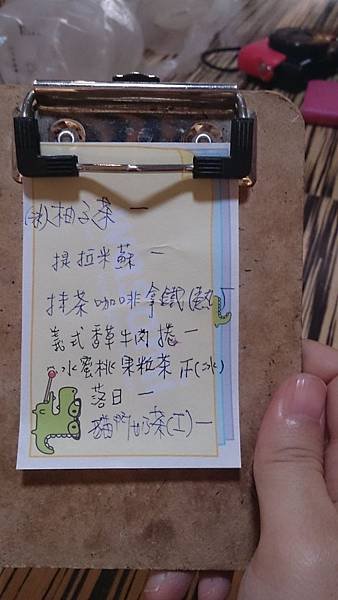 (秋)柚子茶 一
提拉米蘇 一
抹茶咖啡拿鐵(熱)丅
義式香草牛肉捲 一
水蜜桃果粒茶 正(冰)
落日 一
奶茶(工)一